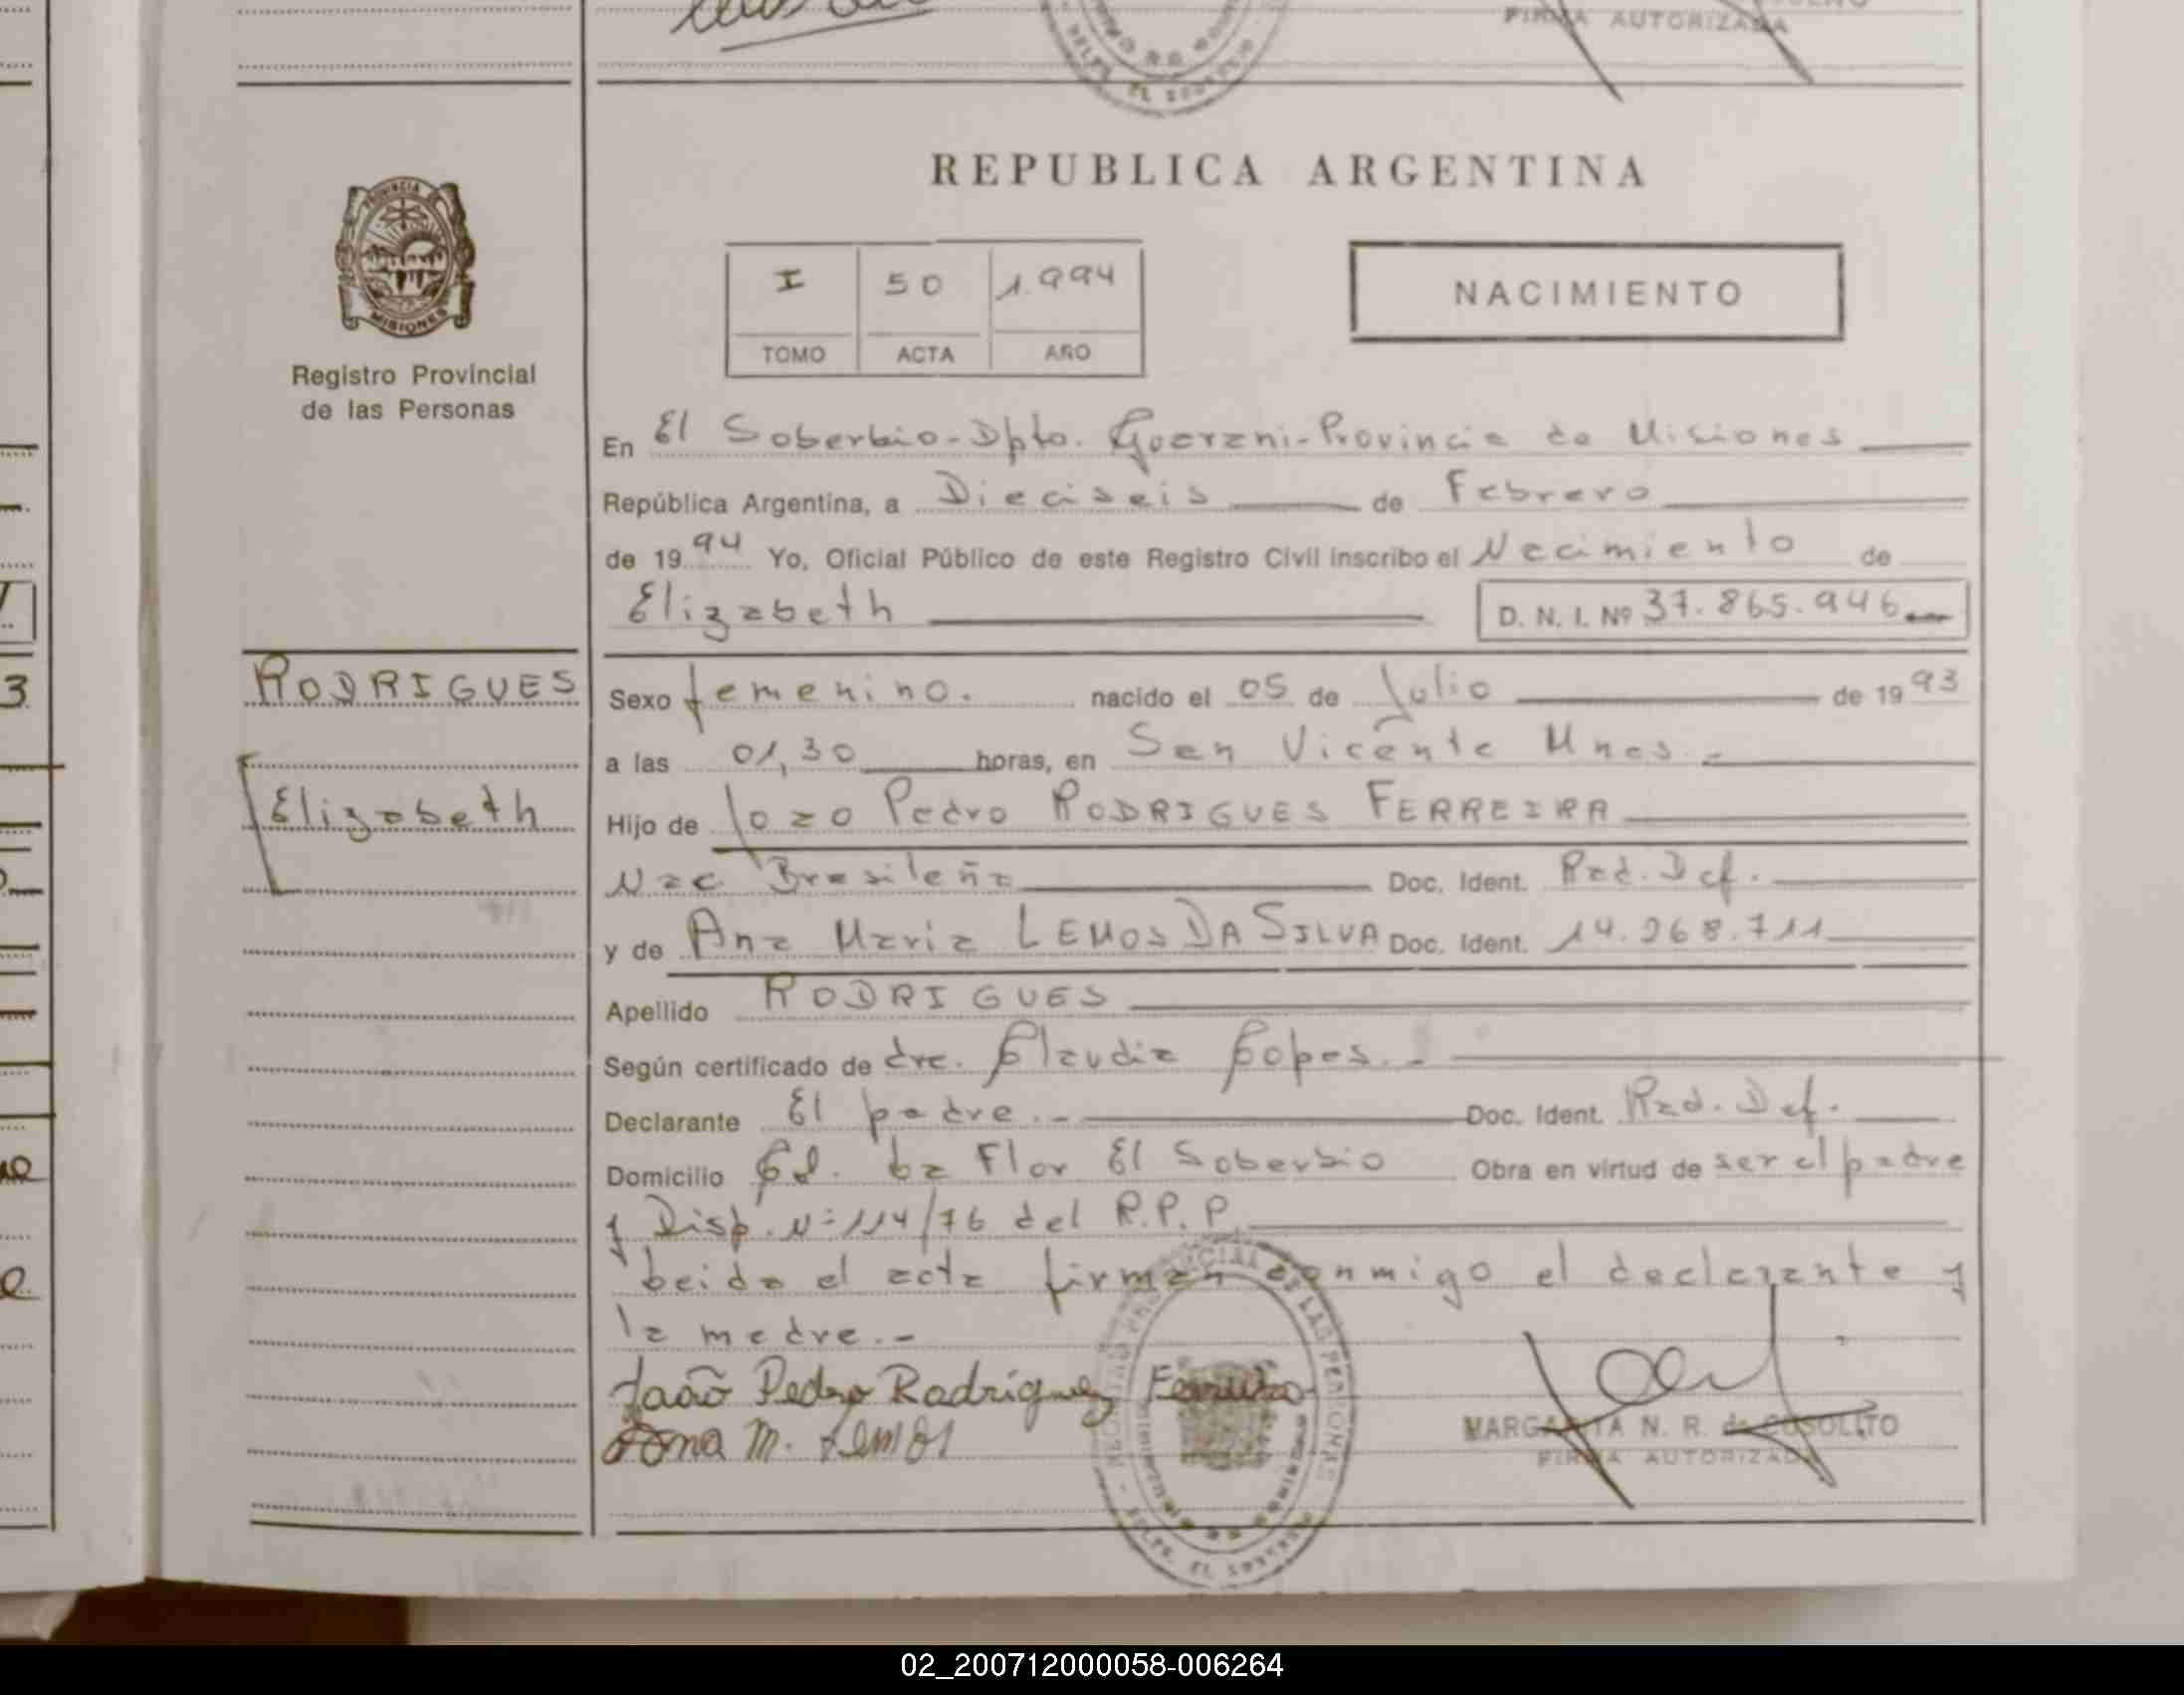 FIRMA AUTORIZADA
EL SOBERBIO
REPUBLICA ARGENTINA
PROVINCIA
MISIONES
Registro Provincial
de las Personas
I 50 1.994
TOMO ACTA AÑO
NACIMIENTO
En El Soberbio-Dpto. Guarani-Provincia de Misiones
República Argentina, a Dieciseis de Febrero
de 1994 Yo, Oficial Público de este Registro Civil inscribo el Nacimiento de
Elizabeth D. N. I. Nº 37.865.946
RODRIGUES
Elizabeth
Sexo femenino. nacido el 05 de Julio de 1993
a las 01,30 horas, en San Vicente Mnes.-
Hijo de Joao Pedro RODRIGUES FERREIRA
Nac. Brasileña Doc. Ident. Rad. Def.
y de Ana Maria LEMOS DA SILVA Doc. Ident. 14.268.711
Apellido RODRIGUES
Según certificado de dra. Claudia Lopes.-
Declarante El padre.- Doc. Ident. Rad. Def.
Domicilio Cl. La Flor El Soberbio Obra en virtud de ser el padre
y Disp. Nº 114/76 del R.P.P.
Leida el acta firman conmigo el declarante y
la madre.-
João Pedro Rodrigues Ferreira
Ana M. Lemos
MARGARITA N. R. de COSOLITO
FIRMA AUTORIZADA
02_200712000058-006264